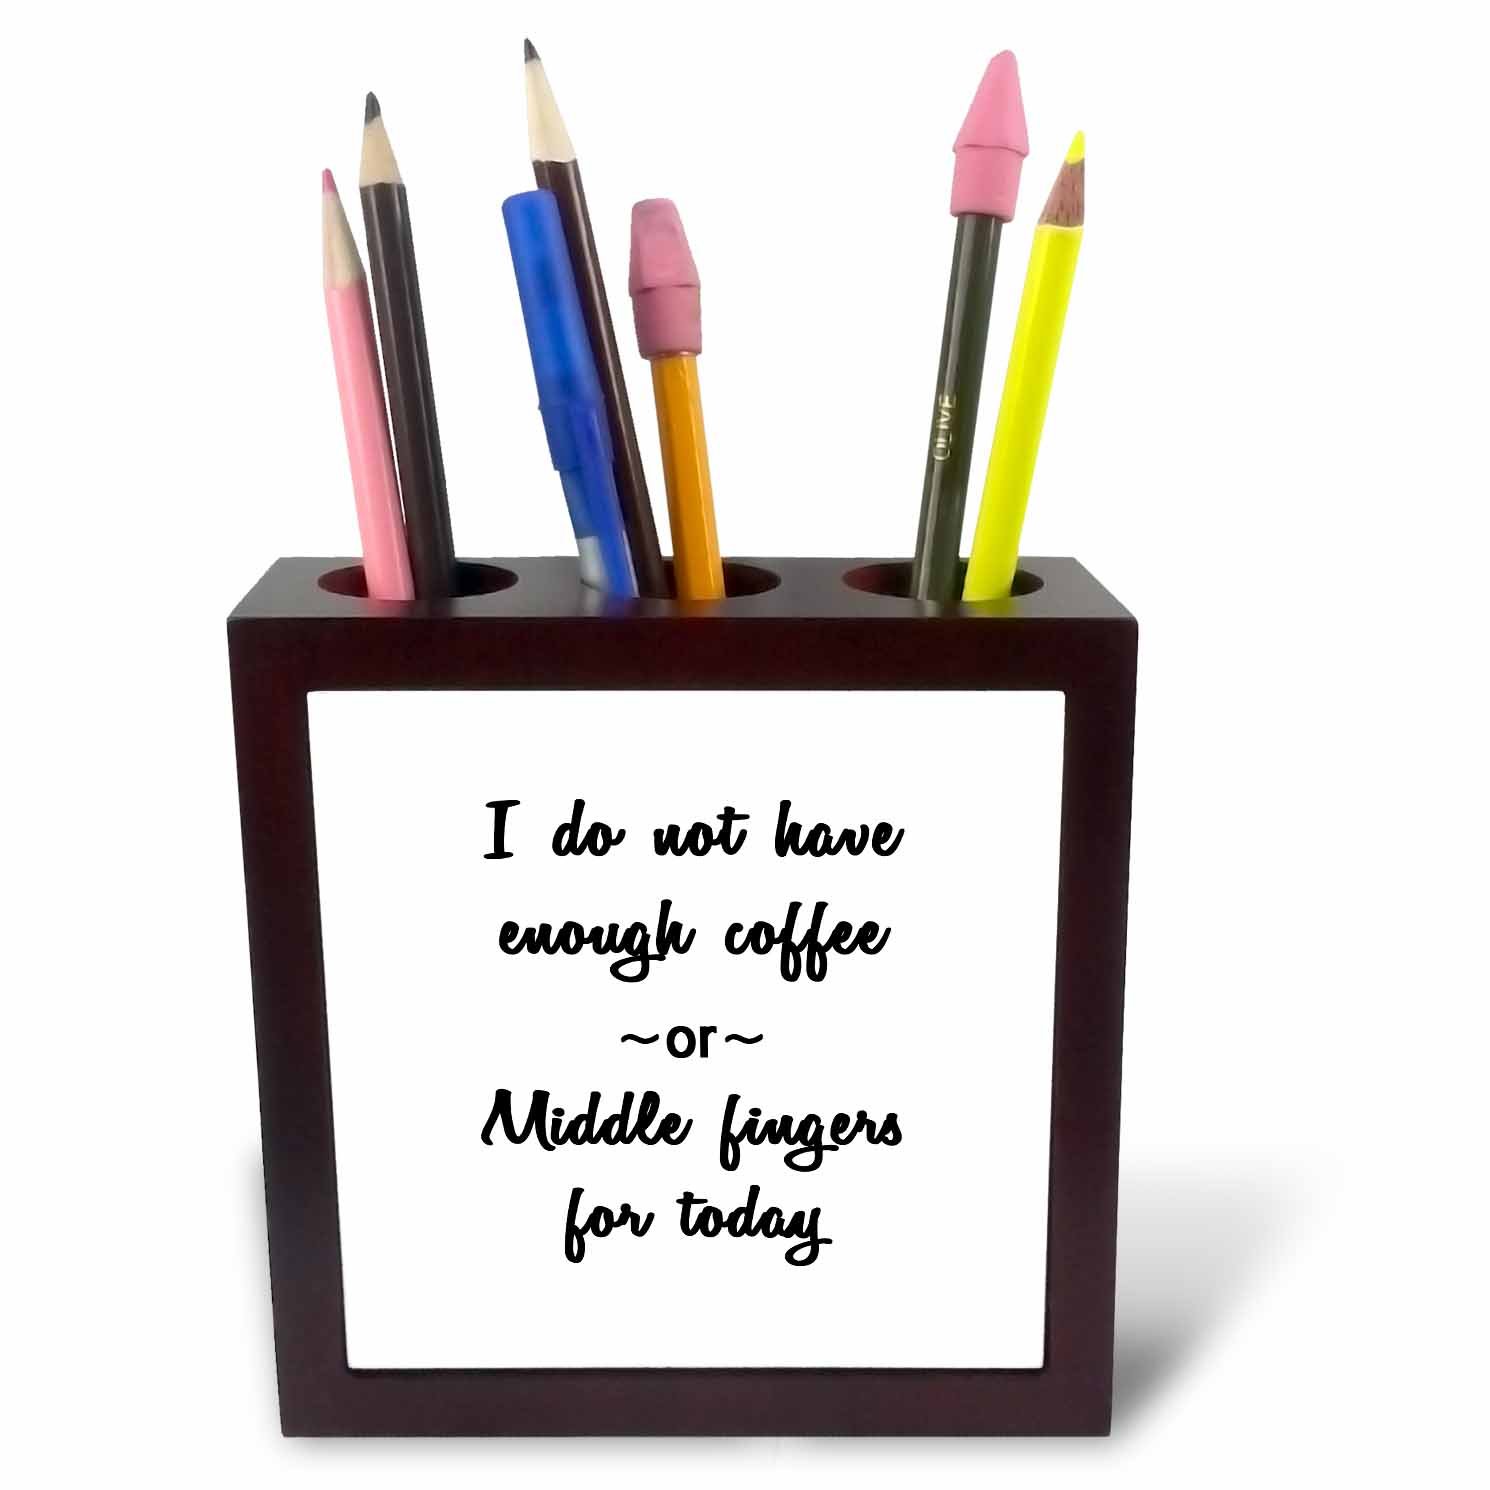 OLIVE
I do not have
enough coffee
~or~
Middle fingers
for today